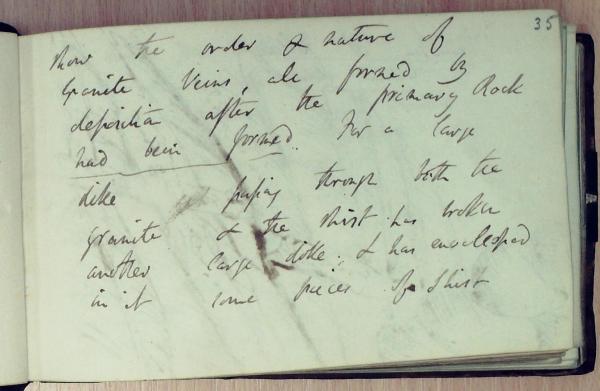 35
show the order & nature of
Granite Veins, all formed by
deposition after the primary Rock
had been formed. For a large
dike passing through both the
granite & the shist has broken
another large dike, & has enveloped
in it some pieces of shist